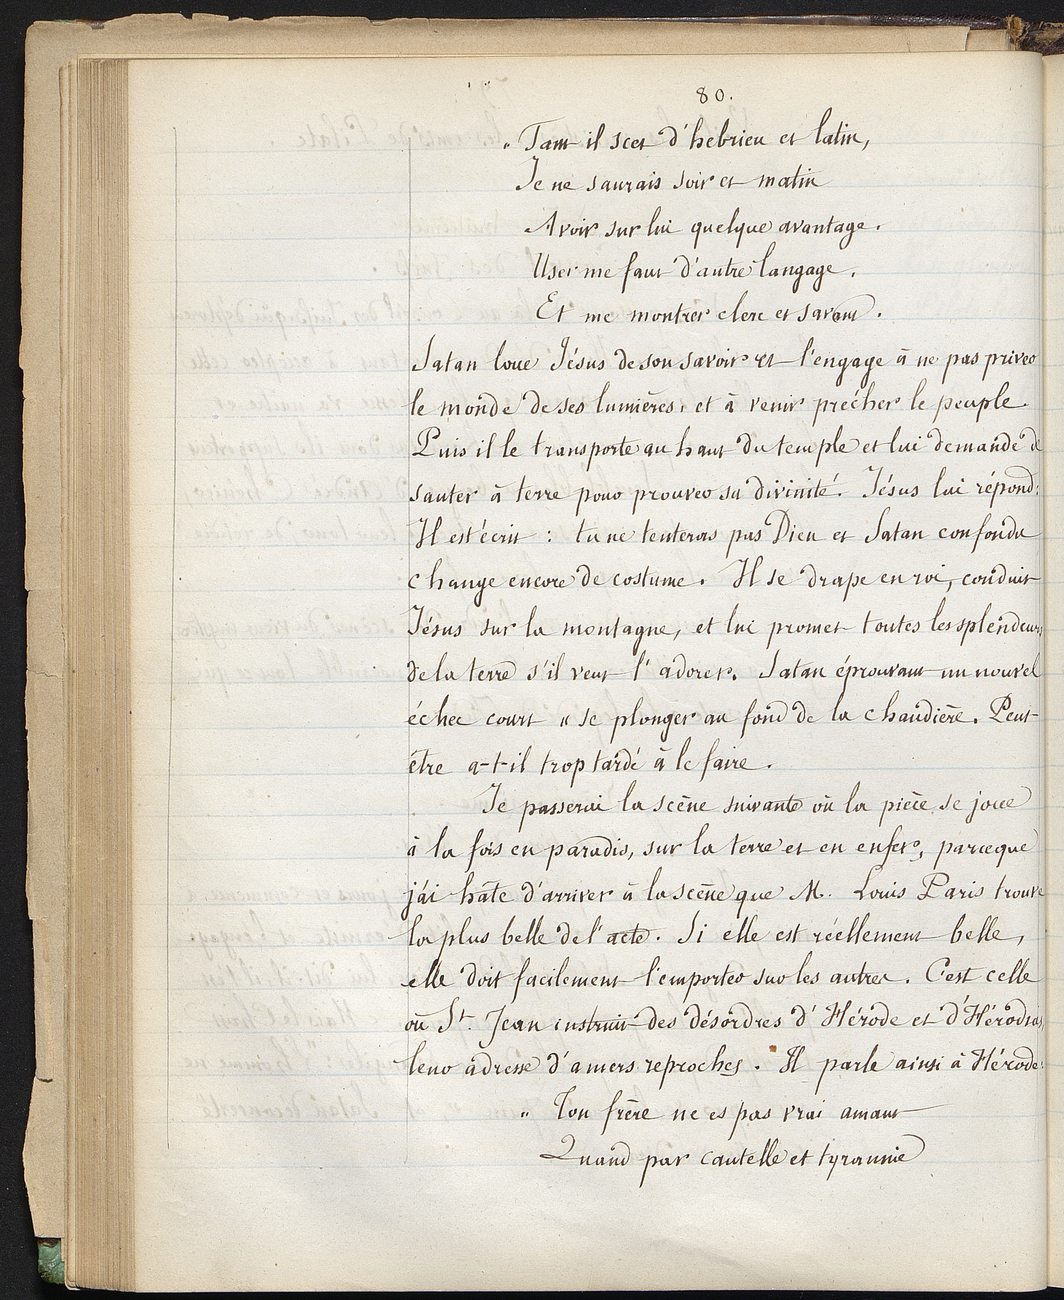 80.
" Tant il scet d'hébrieu et latin,
Je ne saurais soir et matin
Avoir sur lui quelque avantage.
User me faut d'autre langage,
Et me montrer clerc et savant.
Satan loue Jésus de son savoir et l'engage à ne pas priver
le monde de ses lumières, et à venir prêcher le peuple.
Puis il le transporte au haut du temple et lui demande de
sauter à terre pour prouver sa divinité. Jésus lui répond:
Il est écrit : tu ne tenteras pas Dieu et Satan confondu
change encore de costume. Il se drape en roi, conduit
Jésus sur la montagne, et lui promet toutes les splendeurs
de la terre s'il veut l'adorer. Satan éprouvant un nouvel
échec court " se plonger au fond de la chaudière. Peut-
être a-t-il trop tardé à le faire.
Je passerai la scène suivante où la pièce se joue
à la fois en paradis, sur la terre et en enfer, parceque
j'ai hâte d'arriver à la scène que M. Louis Paris trouve
la plus belle de l'acte. Si elle est réellement belle,
elle doit facilement l'emporter sur les autres. C'est celle
où St. Jean instruit des désordres d'Hérode et d'Hérodias
leur adresse d'amers reproches. Il parle ainsi à Hérode:
" Ton frère ne es pas vrai amant
Quand par cautelle et tyrannie